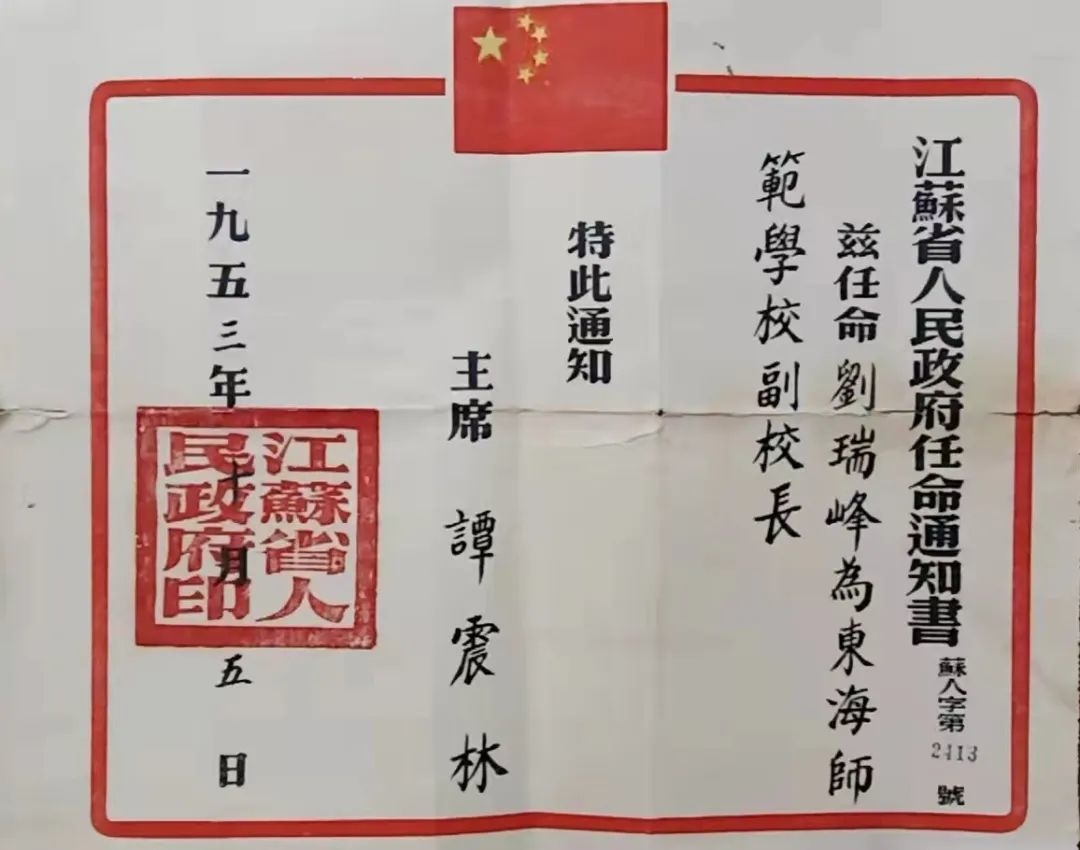 江蘇省人民政府任命通知書
蘇人字第2413號
茲任命劉瑞峰為東海師
範學校副校長
特此通知
主席 譚震林
一九五三年十月五日
江蘇省人
民政府印